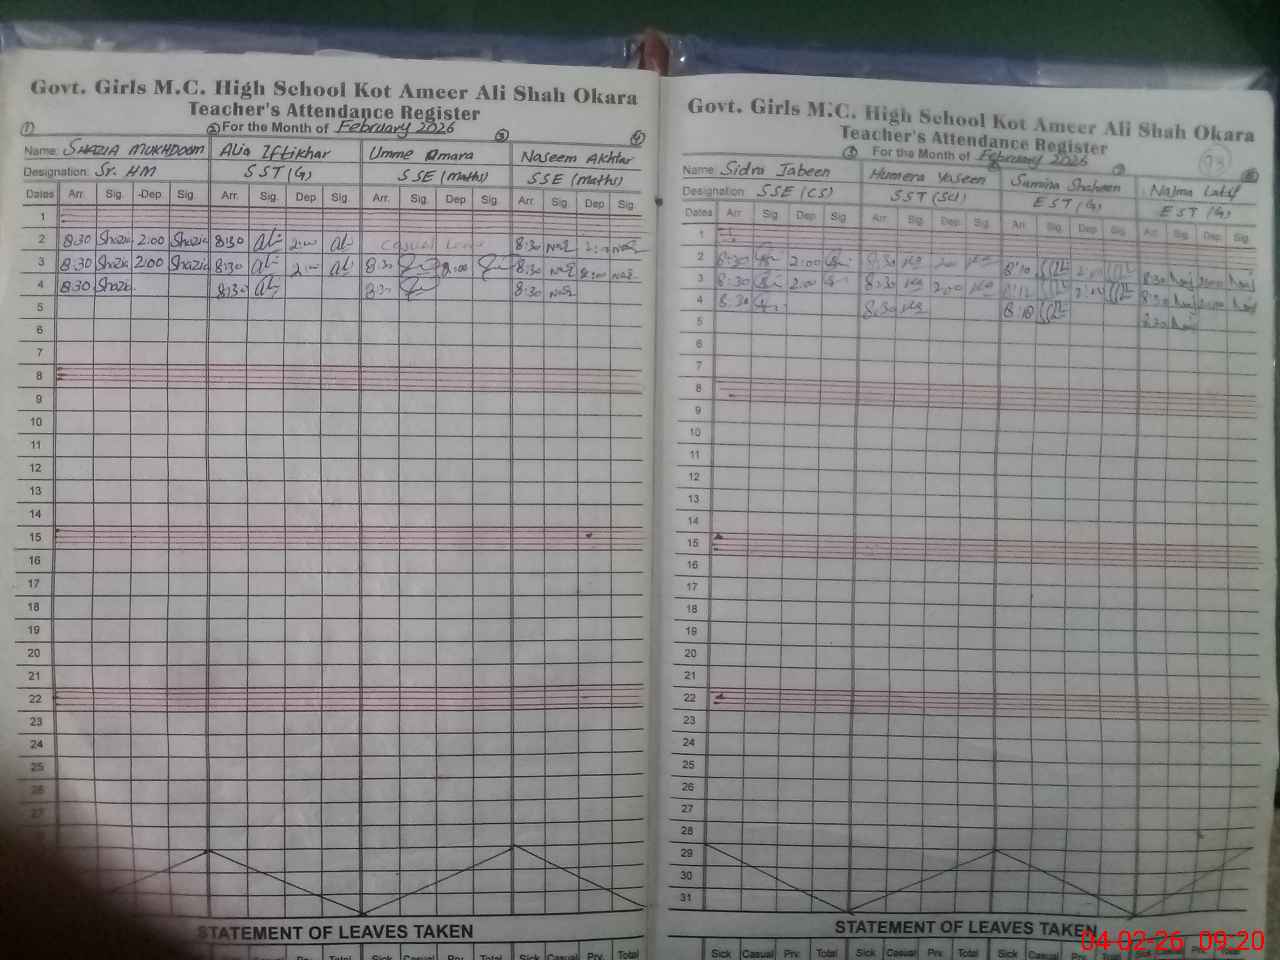 Govt. Girls M.C. High School Kot Ameer Ali Shah Okara
Teacher's Attendance Register
For the Month of February 2026
① ② ③ ④
Name: SHAZIA MUKHDOOM Alia Iftikhar Umme Amara Naseem Akhtar
Designation: Sr. HM SST(G) SSE (maths) SSE (maths)
Dates Arr. Sig. Dep Sig. Arr. Sig. Dep Sig. Arr. Sig. Dep Sig. Arr. Sig. Dep Sig.
1
2 8:30 Shazia 2:00 Shazia 8:30 2:00 Casual Leave 8:30
3 8:30 Shazia 2:00 Shazia 8:30 2:00 8:30 2:00 8:30 2:00
4 8:30 Shazia 8:30 8:30 8:30
5
6
7
8
9
10
11
12
13
14
15
16
17
18
19
20
21
22
23
24
25
26
27
STATEMENT OF LEAVES TAKEN
Prv. Total Sick Casual Prv. Total Sick Casual Prv. Total
Govt. Girls M.C. High School Kot Ameer Ali Shah Okara
Teacher's Attendance Register
For the Month of February 2026
93
Name: Sidra Jabeen Humera Yaseen Samina Shaheen Najma Latif
Designation: SSE (CS) SST (Sci) EST (G) EST (G)
Dates Arr. Sig. Dep Sig. Arr. Sig. Dep Sig. Arr. Sig. Dep Sig. Arr. Sig. Dep Sig.
1
2 8:30 2:00 8:30 2:00 8:10 2:00 8:30 2:00
3 8:30 2:00 8:30 2:00 8:12 2:00 8:30 2:00
4 8:30 8:30 8:10 8:30
5
6
7
8
9
10
11
12
13
14
15
16
17
18
19
20
21
22
23
24
25
26
27
28
29
30
31
STATEMENT OF LEAVES TAKEN
Sick Casual Prv. Total Sick Casual Prv. Total Sick Casual Prv. Total Sick Casual Prv. Total
04-02-26 09:20